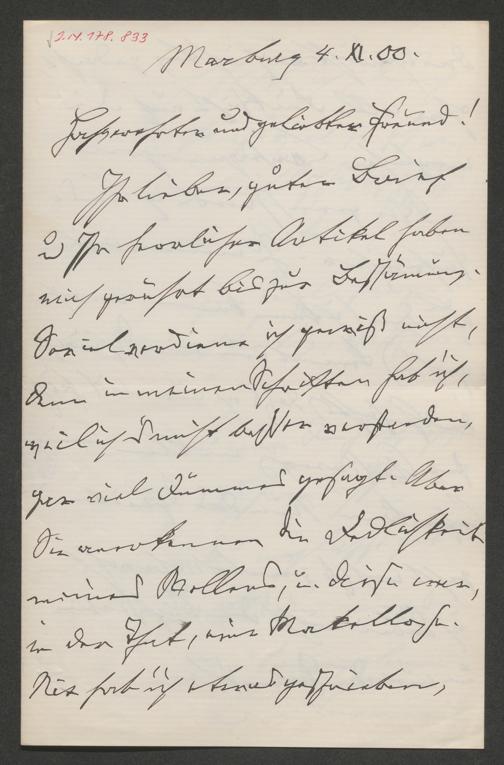 2.N.178.833
Marburg 4. XI. 00.
Hochverehrter und geliebter Freund!
Ihr lieber, guter Brief
u Ihr herrlicher Artikel haben
mich gerührt bis zur Beschämung.
So viel verdiene ich gewiß nicht,
denn in meinen Schriften hab' ich,
weil ich's nicht besser verstanden,
gar viel Dummes gesagt. Aber
Sie anerkennen die Redlichkeit
meines Wollens, u. diese war,
in der That, eine Makellose.
Nie hab' ich etwas geschrieben,